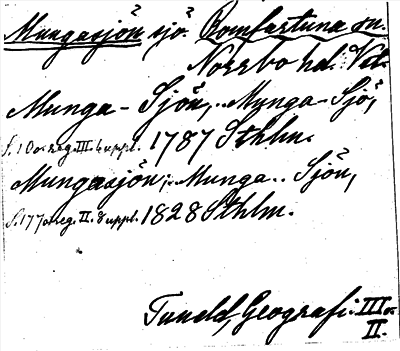 Mungasjön sjö. Romfartuna sn.
Norrbo hd. Vstl.
Munga-Sjön, Mynga-Sjö,
s. 10 o. reg. III. 6 uppl. 1787 Sthlm.
Mungasjön; Munga.. Sjön,
s. 177 o. reg. II. 8 uppl. 1828 Sthlm.
Tuneld, Geografi III o.
II.